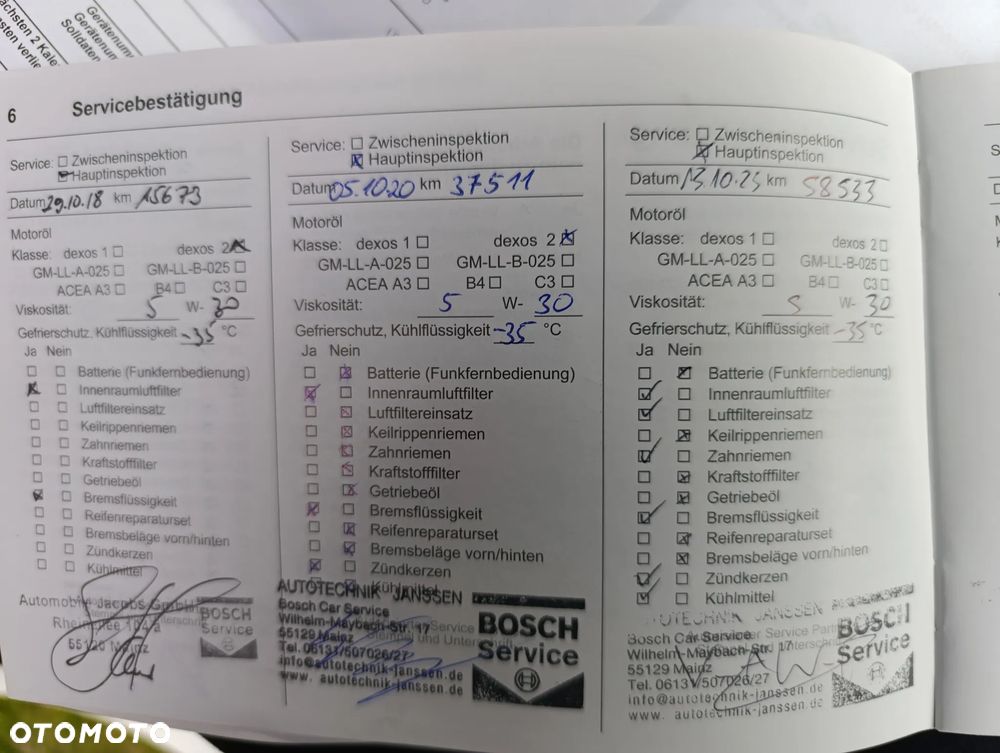 ächsten 2 Kale
sten verlie
Gerätenum
Gerätenum
Solldaten
6 Servicebestätigung
Service: Zwischeninspektion
Hauptinspektion
Datum 29.10.18 km 15673
Motoröl
Klasse: dexos 1 dexos 2
GM-LL-A-025 GM-LL-B-025
ACEA A3 B4 C3
Viskosität: 5 W- 30
Gefrierschutz, Kühlflüssigkeit -35 °C
Ja Nein
Batterie (Funkfernbedienung)
Innenraumluftfilter
Luftfiltereinsatz
Keilrippenriemen
Zahnriemen
Kraftstofffilter
Getriebeöl
Bremsflüssigkeit
Reifenreparaturset
Bremsbeläge vorn/hinten
Zündkerzen
Kühlmittel
Automobile Jacobs GmbH
55120 Mainz
BOSCH
Service
Service: Zwischeninspektion
Hauptinspektion
Datum 05.10.20 km 37511
Motoröl
Klasse: dexos 1 dexos 2
GM-LL-A-025 GM-LL-B-025
ACEA A3 B4 C3
Viskosität: 5 W- 30
Gefrierschutz, Kühlflüssigkeit -35 °C
Ja Nein
Batterie (Funkfernbedienung)
Innenraumluftfilter
Luftfiltereinsatz
Keilrippenriemen
Zahnriemen
Kraftstofffilter
Getriebeöl
Bremsflüssigkeit
Reifenreparaturset
Bremsbeläge vorn/hinten
Zündkerzen
Kühlmittel
AUTOTECHNIK JANSSEN
Bosch Car Service
Wilhelm-Maybach-Str. 17
55129 Mainz
Tel. 06131/507026/27
info@autotechnik-janssen.de
www. autotechnik-janssen.de
BOSCH
Service
Service: Zwischeninspektion
Hauptinspektion
Datum 13.10.23 km 58533
Motoröl
Klasse: dexos 1 dexos 2
GM-LL-A-025 GM-LL-B-025
ACEA A3 B4 C3
Viskosität: 5 W- 30
Gefrierschutz, Kühlflüssigkeit -35 °C
Ja Nein
Batterie (Funkfernbedienung)
Innenraumluftfilter
Luftfiltereinsatz
Keilrippenriemen
Zahnriemen
Kraftstofffilter
Getriebeöl
Bremsflüssigkeit
Reifenreparaturset
Bremsbeläge vorn/hinten
Zündkerzen
Kühlmittel
OTECHNIK JANSSEN
Bosch Car Service
Wilhelm-Maybach-Str. 17
55129 Mainz
Tel. 06131/507026/27
info@autotechnik-janssen.de
www. autotechnik-janssen.de
BOSCH
Service
OTOMOTO